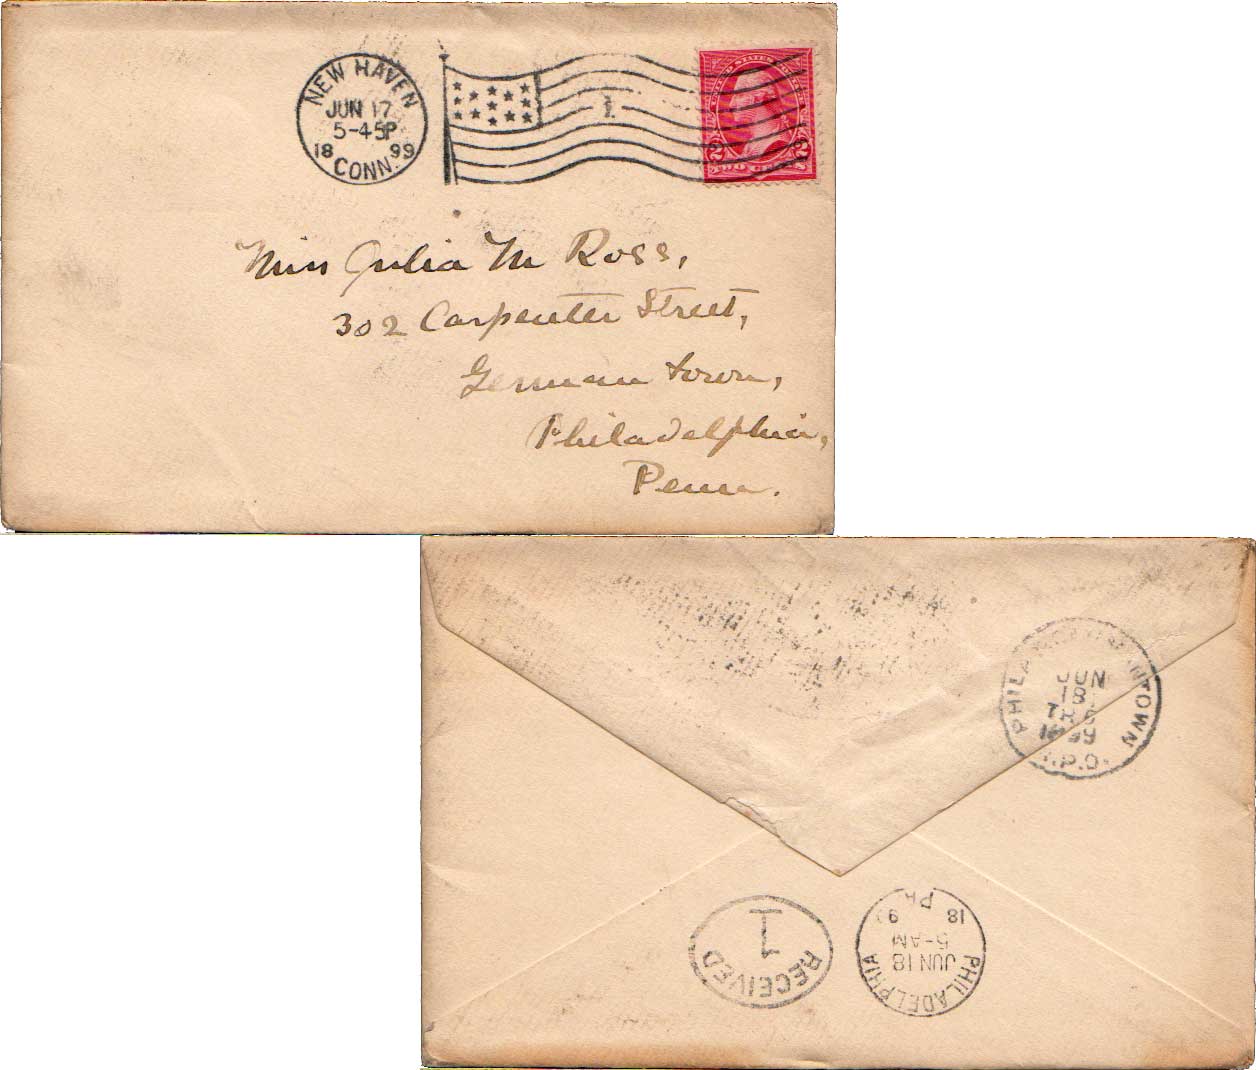 NEW HAVEN
JUN 17
5-45P
18 99
CONN.
1
UNITED STATES POSTAGE
2 TWO CENTS 2
Miss Julia M Ross,
302 Carpenter Street,
Germantown,
Philadelphia,
Penn.
PHILA GERMANTOWN
JUN
18
1899
P.O.
RECEIVED
1
PHILADELPHIA
JUN 18
5-AM
18 9
PA